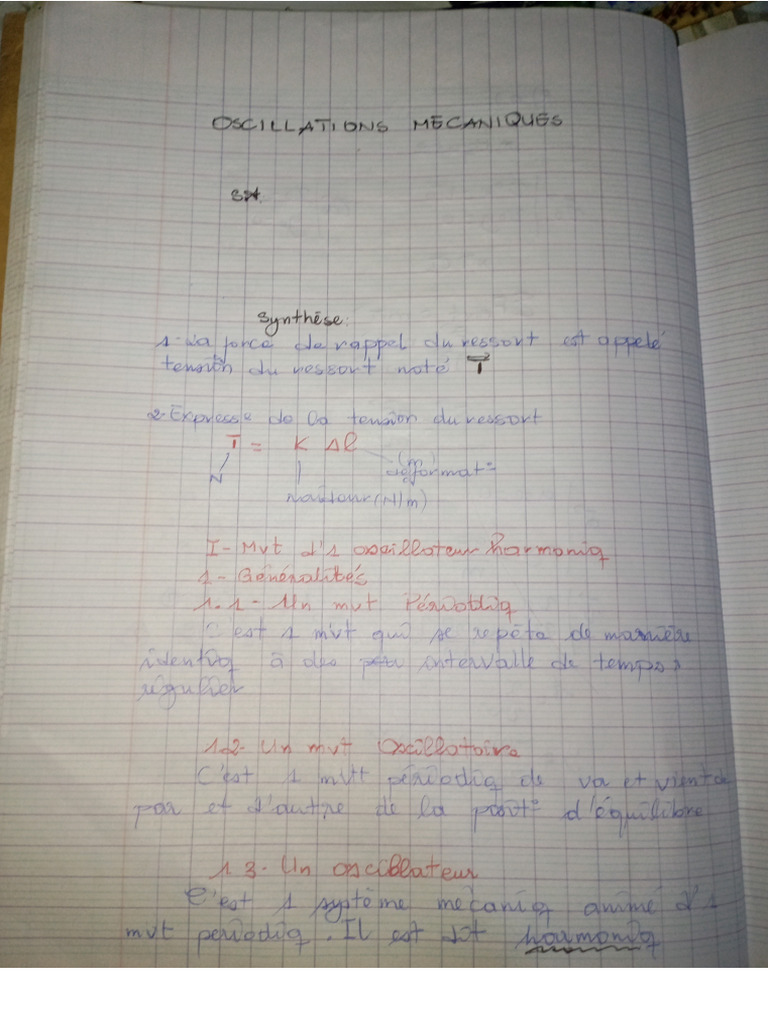 OSCILLATIONS MECANIQUES
Synthèse:
1- La force de rappel du ressort est appelé
tension du ressort noté T
2- Express° de la tension du ressort
T = K Δl
(m)
N
deformat°
raideur (N/m)
I- Mvt d'1 oscillateur harmoniq
1- Généralités
1.1- Un mvt Périodiq
C'est 1 mvt qui se repète de manière
identiq à des intervalle de temps
régulier
1.2- Un mvt Oscillatoire
C'est 1 mvt périodiq de va et vient de
par et d'autre de la posit° d'équilibre
1.3- Un oscillateur
C'est 1 système mécaniq animé d'1
mvt periodiq. Il est dit harmoniq